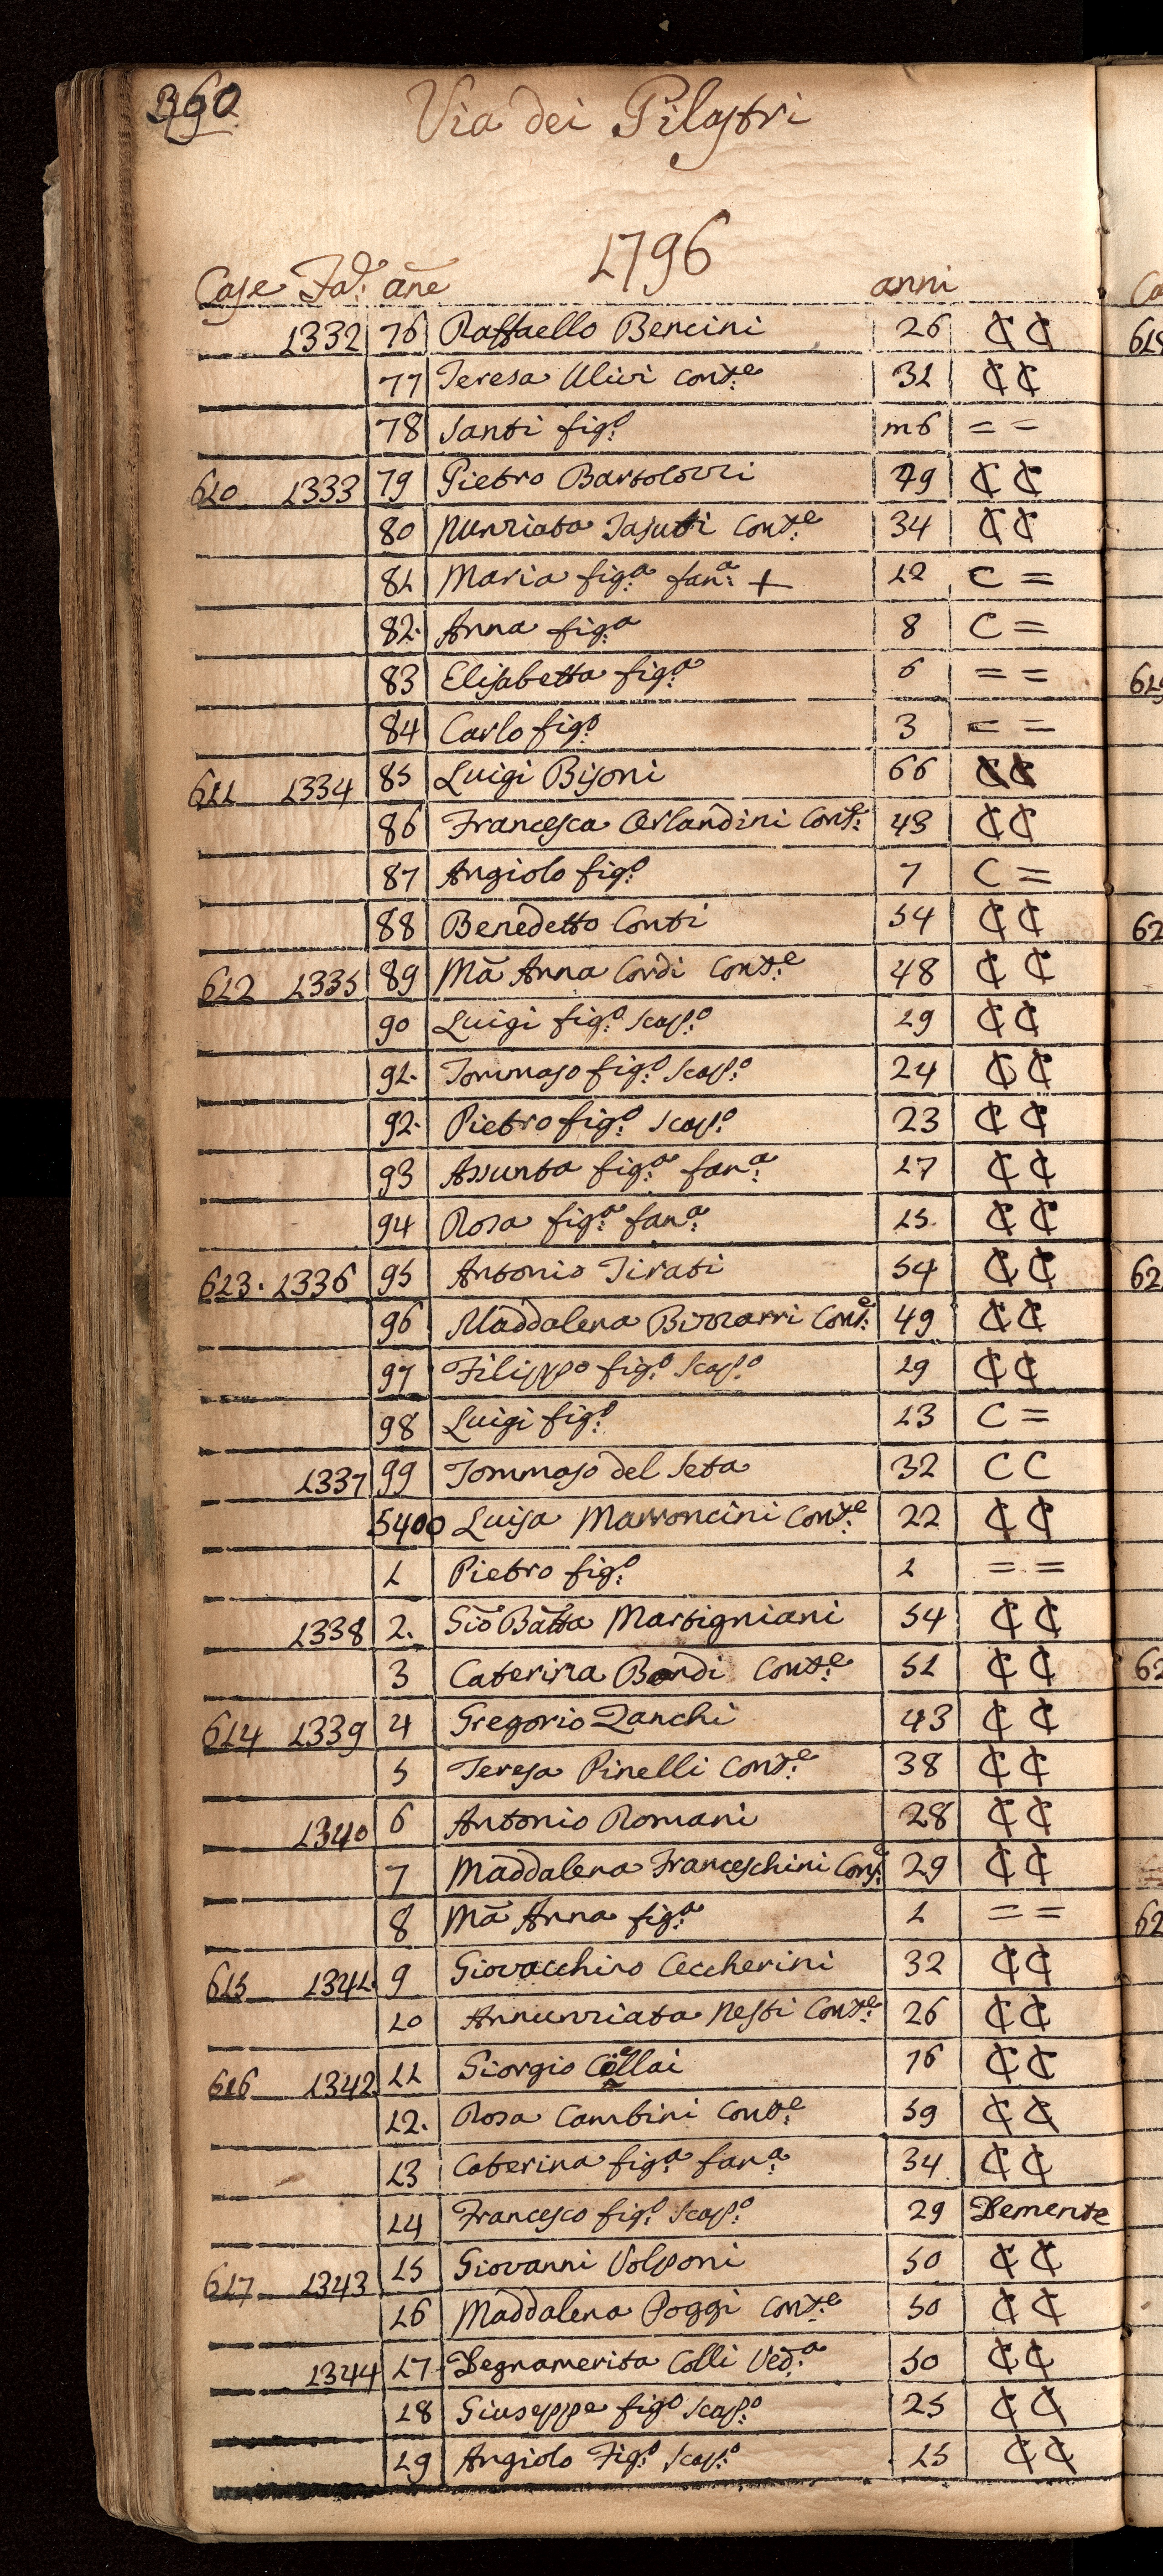 360
Via dei Pilastri
1796
Case Fa.d: añe anni
1332 76 Raffaello Bencini 26 C C
77 Teresa Ulivi Cont:e 31 C C
78 Santi fig:o m6 = =
610 1333 79 Pietro Bartolozzi 49 C C
80 Nunziata Tasuti Cont:e 34 C C
81 Maria fig:a fan:a + 12 C =
82. Anna fig:a 8 C =
83 Elisabetta fig:a 6 = =
84 Carlo fig:o 3 = =
611 1334 85 Luigi Bisoni 66 C C
86 Francesca Orlandini Cont:e 43 C C
87 Angiolo fig:o 7 C =
88 Benedetto Conti 54 C C
612 1335 89 Mã Anna Cordi Cont:e 48 C C
90 Luigi fig:o scap:o 29 C C
91. Tommaso fig:o scap:o 24 C C
92. Pietro fig:o scap:o 23 C C
93 Assunta fig:a fan:a 17 C C
94 Rosa fig:a fan:a 15. C C
613. 1336 95 Antonio Tirati 54 C C
96 Maddalena Bizzarri Cont:e 49 C C
97 Filippo fig:o Scap:o 19 C C
98 Luigi fig:o 13 C =
1337 99 Tommaso del Seta 32 C C
5400 Luisa Marroncini Cont:e 22 C C
1 Pietro fig:o 1 = =
1338 2. Giõ Bãtta Martigniani 54 C C
3 Caterina Bardi Cont:e 51 C C
614 1339 4 Gregorio Zanchi 43 C C
5 Teresa Pinelli Cont:e 38 C C
1340 6 Antonio Romani 28 C C
7 Maddalena Franceschini Cont:e 29 C C
8 Mã Anna fig:a 1 = =
615 1341. 9 Giovacchino Ceccherini 32 C C
10 Annunziata Nesti Cont:e 26 C C
616 1342 11 Giorgio 76 C C
12. Rosa Cambini Cont:e 59 C C
13 Caterina fig:a fan:a 34 C C
14 Francesco fig:o scap:o 29 Demente
617 1343 15 Giovanni Volponi 50 C C
16 Maddalena Poggi Cont:e 50 C C
1344 17 Degnamerita Colli Ved:a 50 C C
18 Giuseppe fig:o scap:o 25 C C
19 Angiolo Fig:o scap:o 15 C C